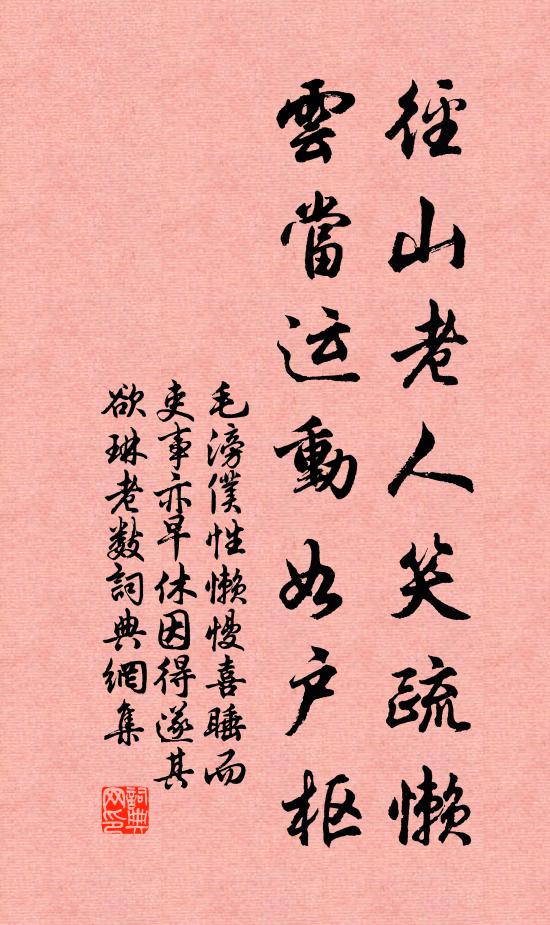 徑山老人笑疏懶
雲當运動如户樞
毛滂僕性懶慢喜睡而
吏事亦早休因得遂其
欲琳老数詞典網集
詞典网印